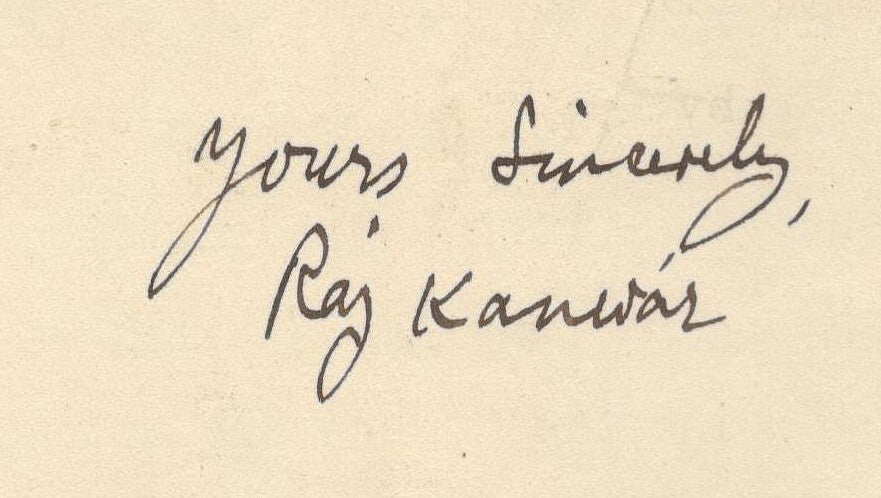 Yours Sincerely,
Raj Kanwár